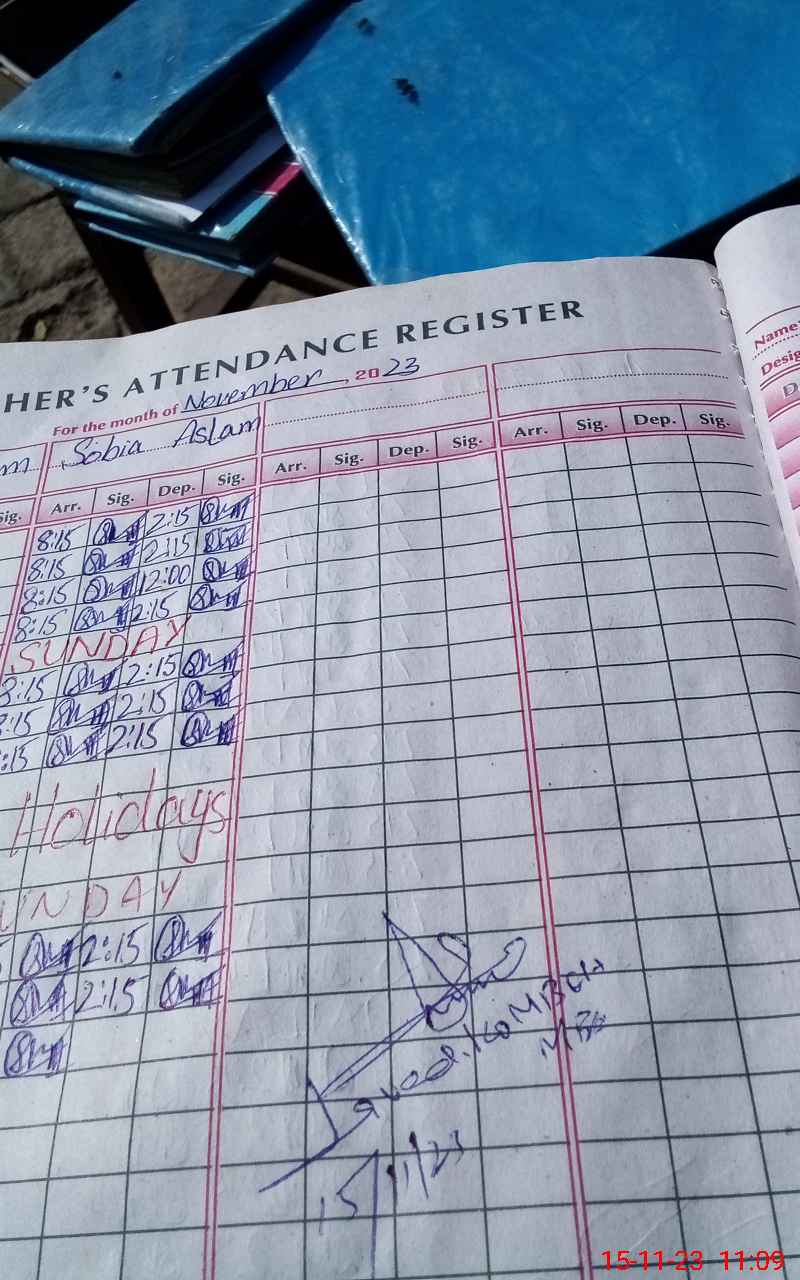 HER'S ATTENDANCE REGISTER
For the month of November, 2023
m Sobia Aslam
Sig. Arr. Sig. Dep. Sig. Arr. Sig. Dep. Sig. Arr. Sig. Dep. Sig.
8:15 2:15
8:15 2:15
8:15 12:00
8:15 2:15
SUNDAY
8:15 2:15
8:15 2:15
:15 2:15
Holidays
UNDAY
2:15
2:15
15/11/23
Name
Desig
D
15-11-23 11:09